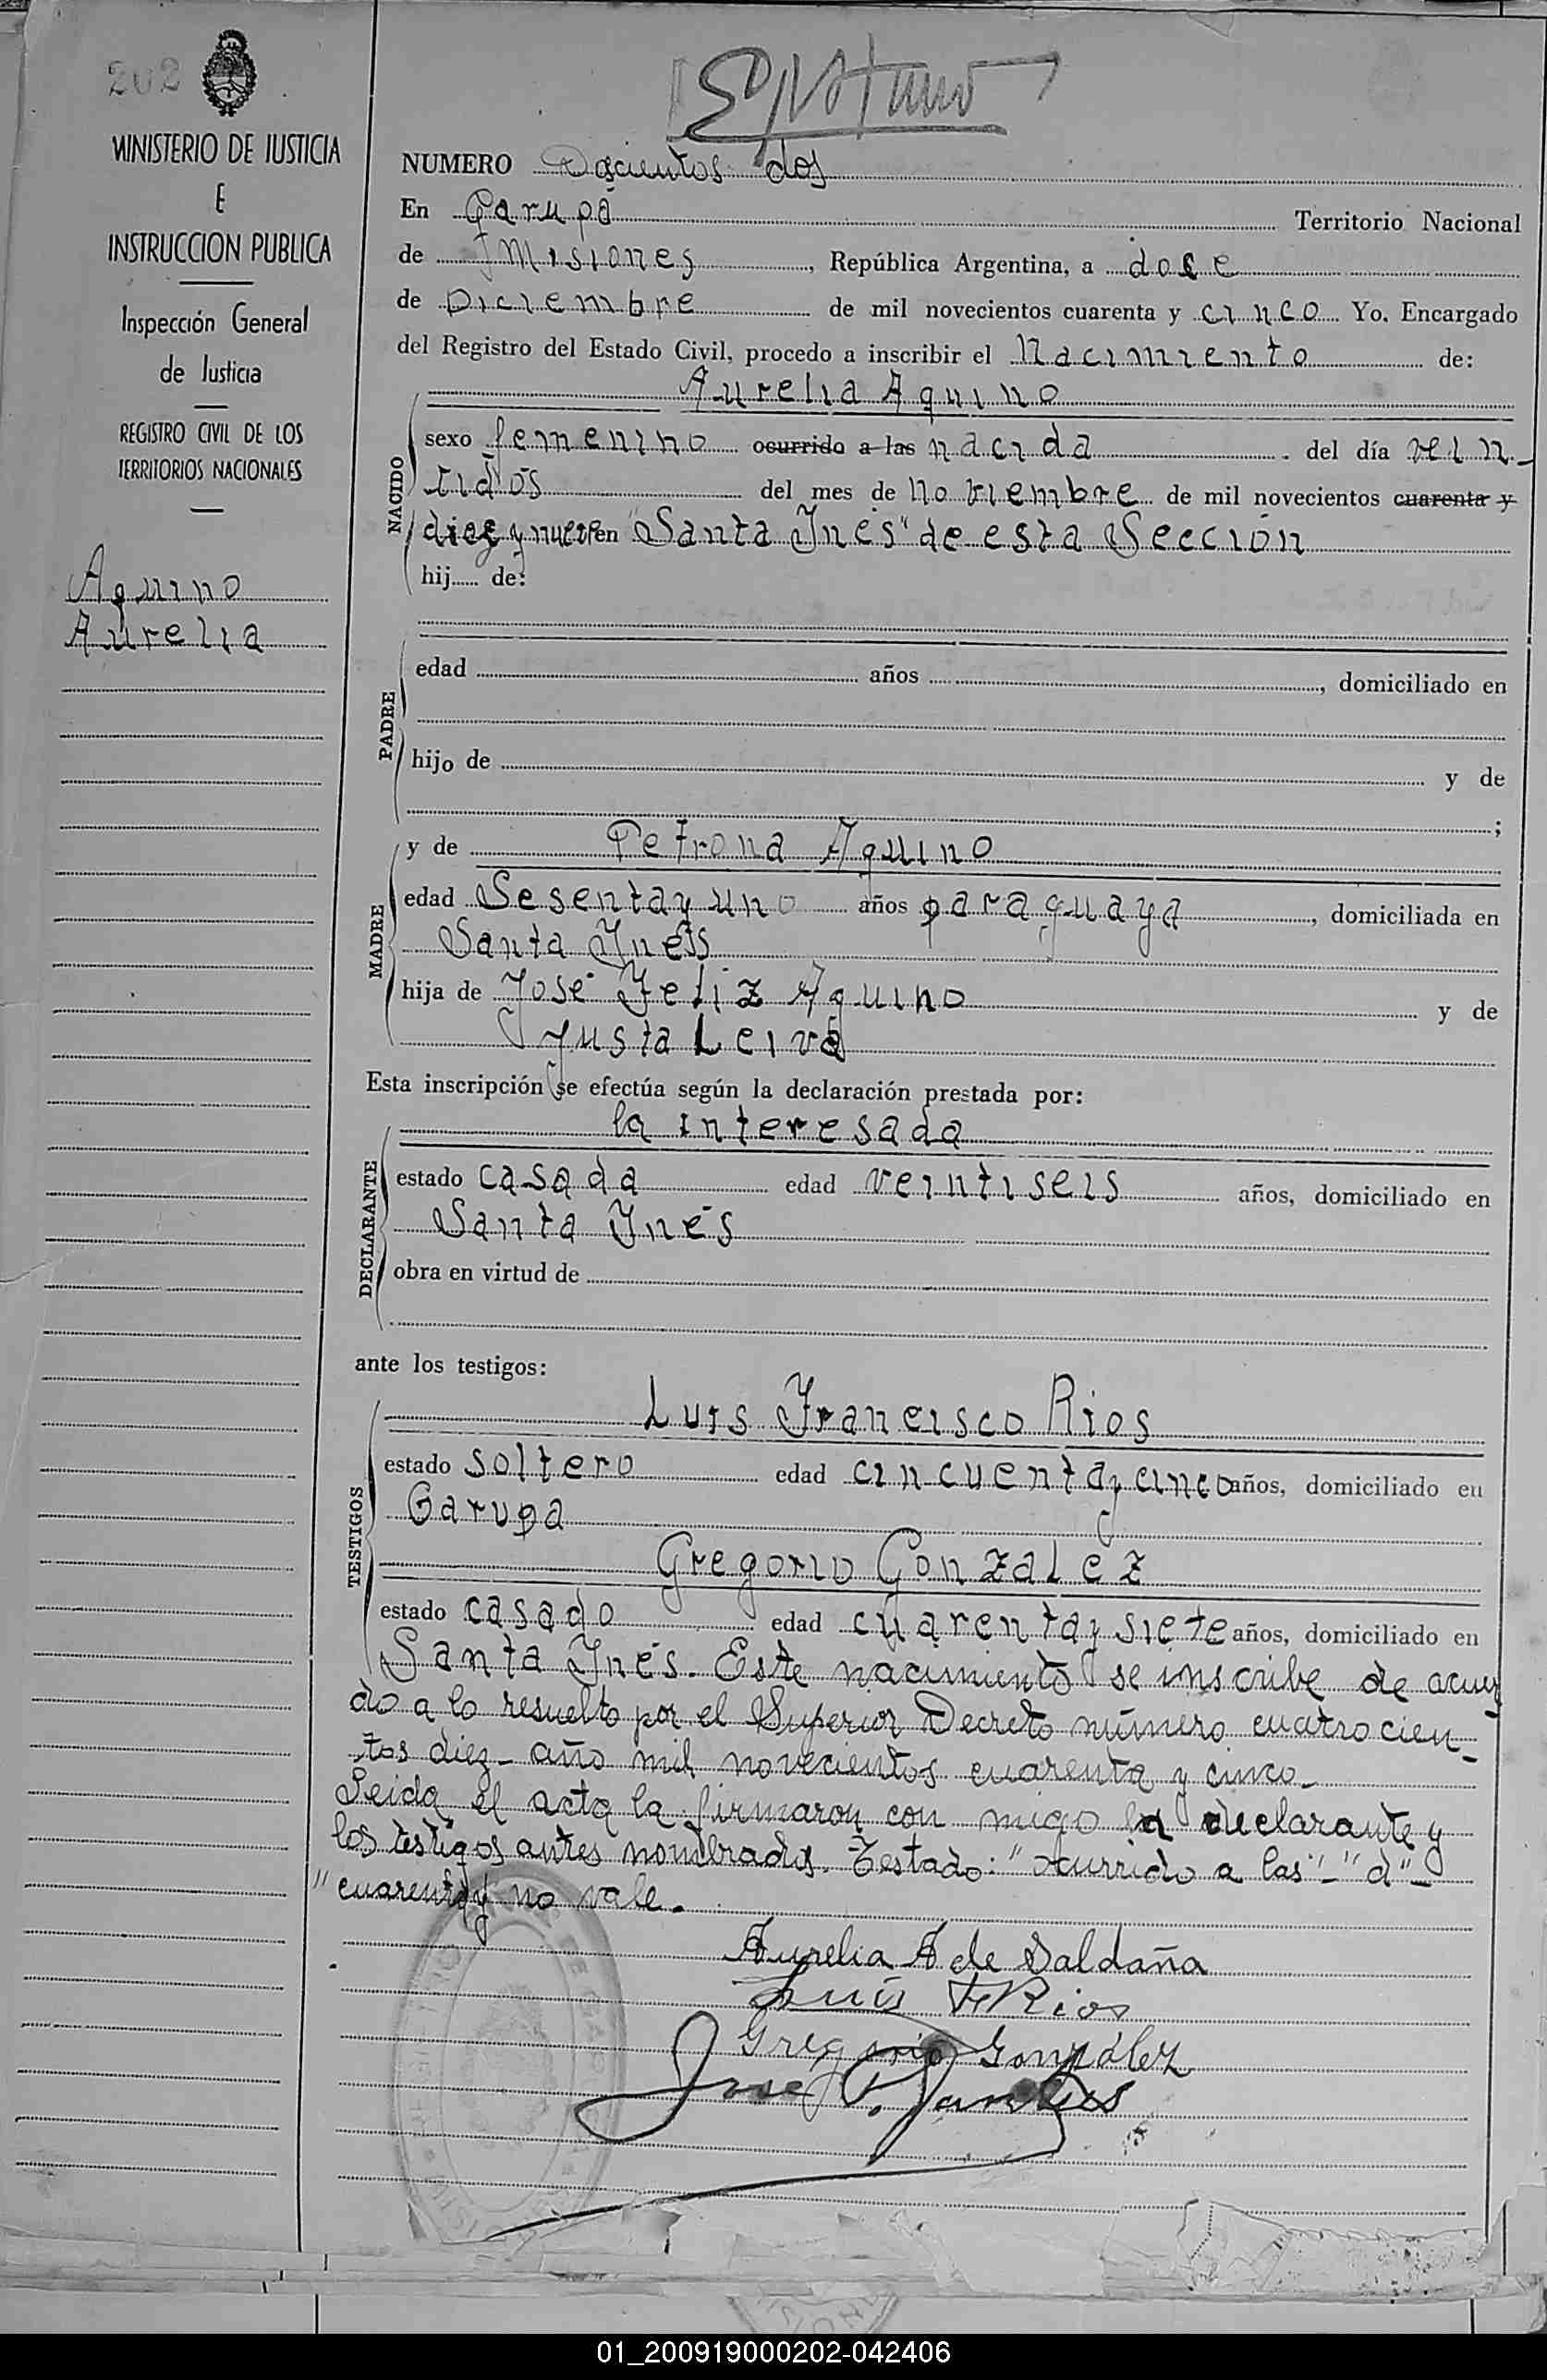 202
MINISTERIO DE JUSTICIA
E
INSTRUCCION PUBLICA
Inspección General
de Justicia
REGISTRO CIVIL DE LOS
TERRITORIOS NACIONALES
Aquino
Aurelia
NUMERO Doscientos dos
En Garupá Territorio Nacional
de Misiones, República Argentina, a doce
de Diciembre de mil novecientos cuarenta y cinco Yo, Encargado
del Registro del Estado Civil, procedo a inscribir el Nacimiento de:
Aurelia Aquino
NACIDO
sexo femenino ocurrido a las nacida del día vein-
tidós del mes de noviembre de mil novecientos cuarenta y
diez y nueve en "Santa Inés" de esta Sección
hij de:
PADRE
edad años , domiciliado en
hijo de y de
;
MADRE
y de Petrona Aquino
edad Sesenta y uno años paraguaya, domiciliada en
Santa Inés
hija de José Feliz Aquino y de
Justa Leiva
Esta inscripción se efectúa según la declaración prestada por:
la interesada
DECLARANTE
estado casada edad veintiseis años, domiciliado en
Santa Inés
obra en virtud de
ante los testigos:
TESTIGOS
Luis Francisco Rios
estado soltero edad cincuenta y cinco años, domiciliado en
Garupa
Gregorio Gonzalez
estado casado edad cuarenta y siete años, domiciliado en
Santa Inés. Este nacimiento se inscribe de acuer
do a lo resuelto por el Superior Decreto número cuatrocien-
tos diez- año mil novecientos cuarenta y cinco-
Leida el acta la firmaron con migo la declarante y
los testigos antes nombrados. Testado: "ocurrido a las"-"d"-
"cuarenta y no vale.
Aurelia A de Saldaña
Luis F Rios
Gregorio González
01_200919000202-042406